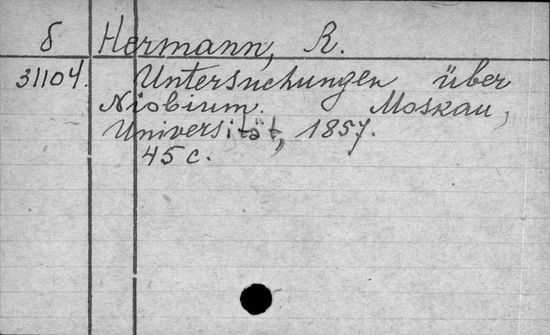 б Hermann, R.
31104. Untersuchungen über
Niobium. Moskau,
Universität, 1857.
45 c.